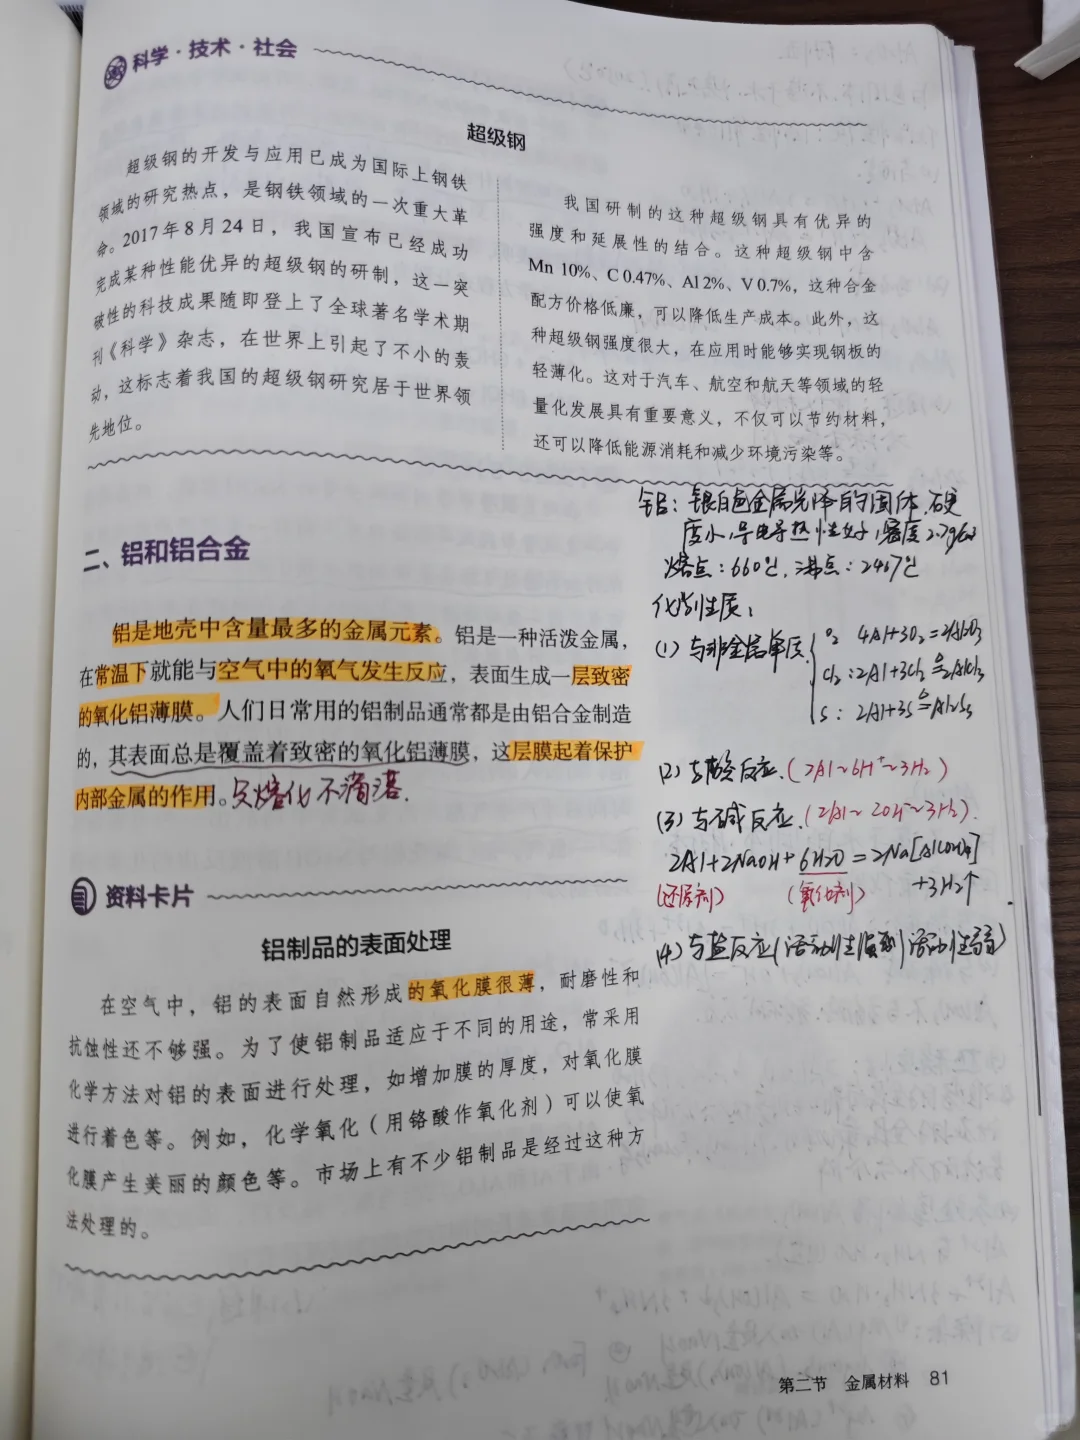 科学·技术·社会
超级钢
超级钢的开发与应用已成为国际上钢铁
领域的研究热点，是钢铁领域的一次重大革
命。2017年8月24日，我国宣布已经成功
完成某种性能优异的超级钢的研制，这一突
破性的科技成果随即登上了全球著名学术期
刊《科学》杂志，在世界上引起了不小的轰
动，这标志着我国的超级钢研究居于世界领
先地位。
我国研制的这种超级钢具有优异的
强度和延展性的结合。这种超级钢中含
Mn 10%、C 0.47%、Al 2%、V 0.7%，这种合金
配方价格低廉，可以降低生产成本。此外，这
种超级钢强度很大，在应用时能够实现钢板的
轻薄化。这对于汽车、航空和航天等领域的轻
量化发展具有重要意义，不仅可以节约材料，
还可以降低能源消耗和减少环境污染等。
二、铝和铝合金
铝是地壳中含量最多的金属元素。铝是一种活泼金属，
在常温下就能与空气中的氧气发生反应，表面生成一层致密
的氧化铝薄膜。人们日常用的铝制品通常都是由铝合金制造
的，其表面总是覆盖着致密的氧化铝薄膜，这层膜起着保护
内部金属的作用。只熔化不滴落.
铝：银白色金属光泽的固体，硬
度小，导电导热性好，密度2.7g/cm3
熔点：660℃，沸点：2467℃
化学性质：
(1) 与非金属单质
O2 4Al+3O2=2Al2O3
Cl2：2Al+3Cl2 △= 2AlCl3
S：2Al+3S △= Al2S3
(2) 与酸反应.(2Al~6H+~3H2)
(3) 与碱反应.(2Al~2OH-~3H2).
2Al+2NaOH+6H2O=2Na[Al(OH)4]
+3H2↑
(还原剂) (氧化剂)
(4) 与盐反应(活动性强到活动性弱)
资料卡片
铝制品的表面处理
在空气中，铝的表面自然形成的氧化膜很薄，耐磨性和
抗蚀性还不够强。为了使铝制品适应于不同的用途，常采用
化学方法对铝的表面进行处理，如增加膜的厚度，对氧化膜
进行着色等。例如，化学氧化（用铬酸作氧化剂）可以使氧
化膜产生美丽的颜色等。市场上有不少铝制品是经过这种方
法处理的。
第二节 金属材料 81